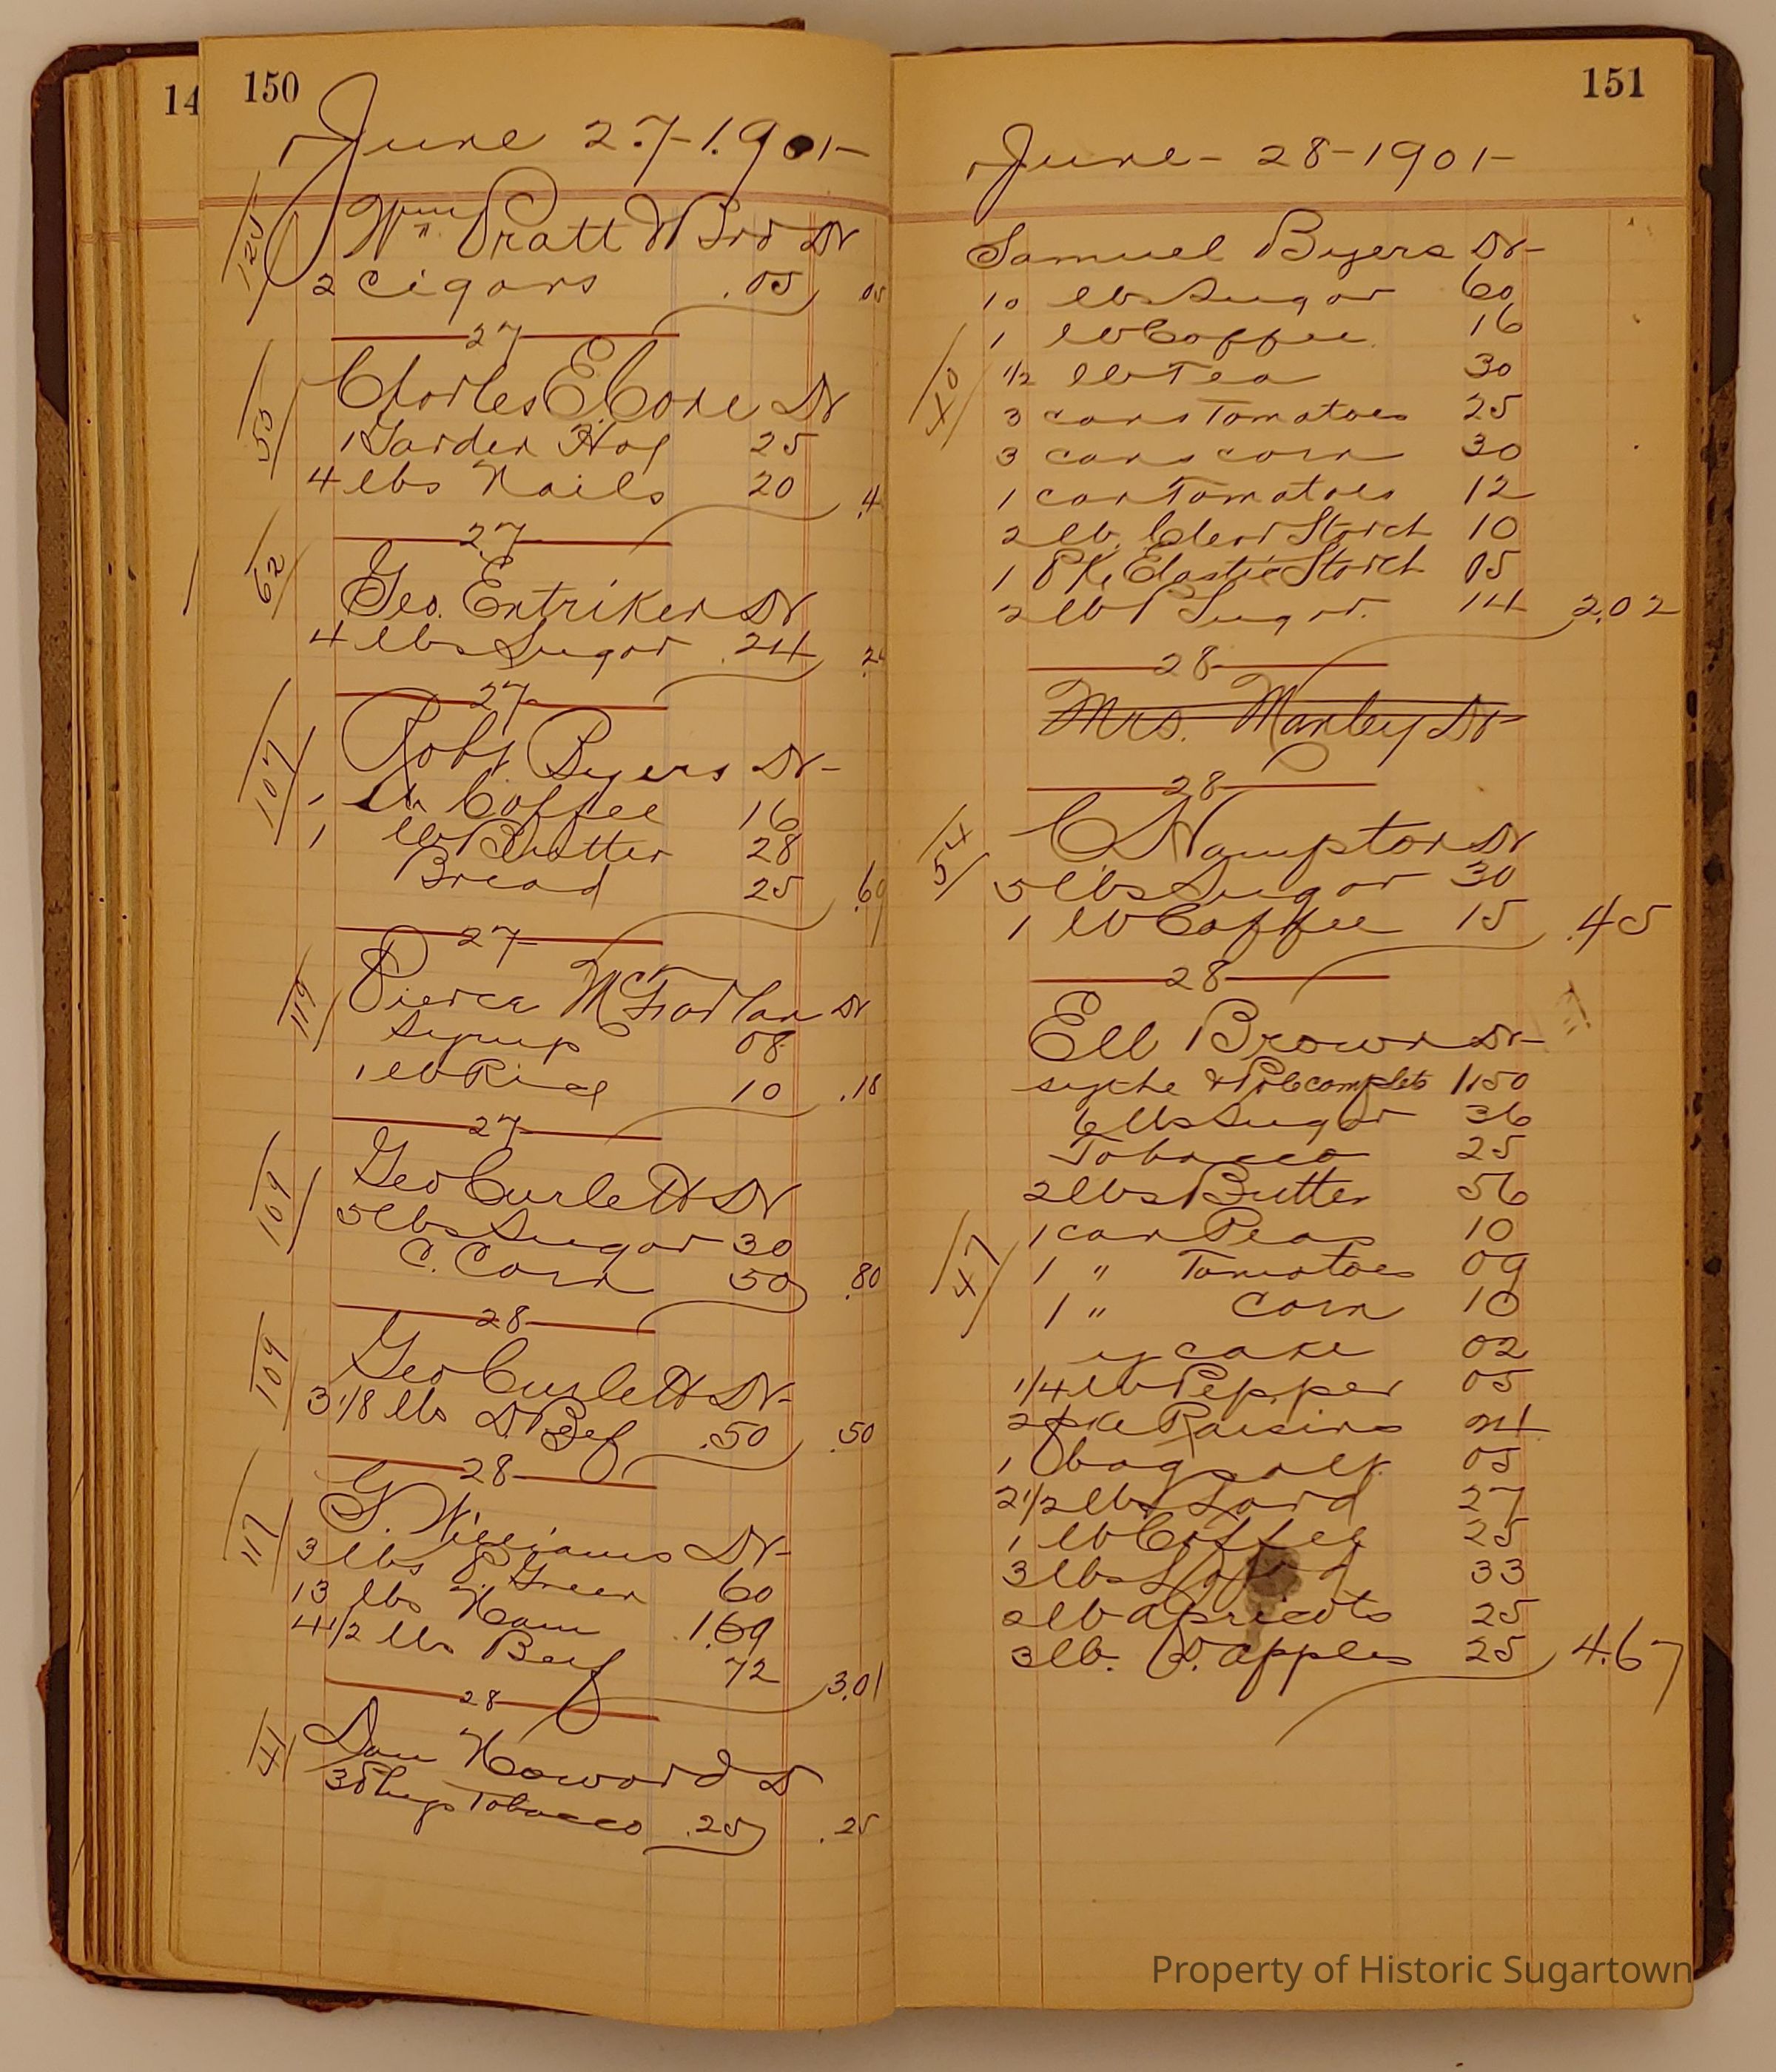 14
150
June 27-1901-
125
Wm Pratt & Bro Dr
2 Cigars .05 .05
27
53
Charles E. Cone Dr
1 Garden Hoe 25
4 lbs Nails 20 .4
27
62
Geo. Entriken Dr
4 lbs Sugar .24 .24
27
107
Robt. Byers Dr-
1 lb Coffee 16
1 lb Butter 28
Bread 25 .69
27
119
Pierce McFarlan Dr
Syrup 08
1 lb Rice 10 .18
27
109
Geo Curlett Dr
5 lbs Sugar 30
C. Corn 50 .80
28
109
Geo Curlett Dr-
3 1/8 lbs D. Beef .50 .50
28
117
G. Williams Dr-
3 lbs P. Green 60
13 lbs Ham 1.69
4 1/2 lbs Beef 72 3.01
28
41
Dan Howard D
3 Plugs Tobacco .25 .25
151
June - 28-1901-
Samuel Byers Dr-
10 lbs Sugar 60
1 lb Coffee 16
40
1/2 lb Tea 30
3 cans Tomatoes 25
3 cans corn 30
1 can Tomatoes 12
2 lb. Starch 10
1 PK, Elastic Starch 05
2 lb P Sugar. 14 2.02
28
Mrs. Manley Dr
28
54
C Hampton Dr
5 lbs Sugar 30
1 lb Coffee 15 .45
28
Ell Brown Dr-
scythe & complete 1.50
6 lbs Sugar 36
Tobacco 25
2 lbs Butter 56
47
1 can Peas 10
1 " Tomatoes 09
1 " Corn 10
cake 02
1/4 lb Pepper 05
2 pke Raisins 24
1 bag salt 05
2 1/2 lbs Lard 27
1 lb Coffee 25
3 lbs 33
2 lb apricots 25
3 lb. apples 25 4.67
Property of Historic Sugartown